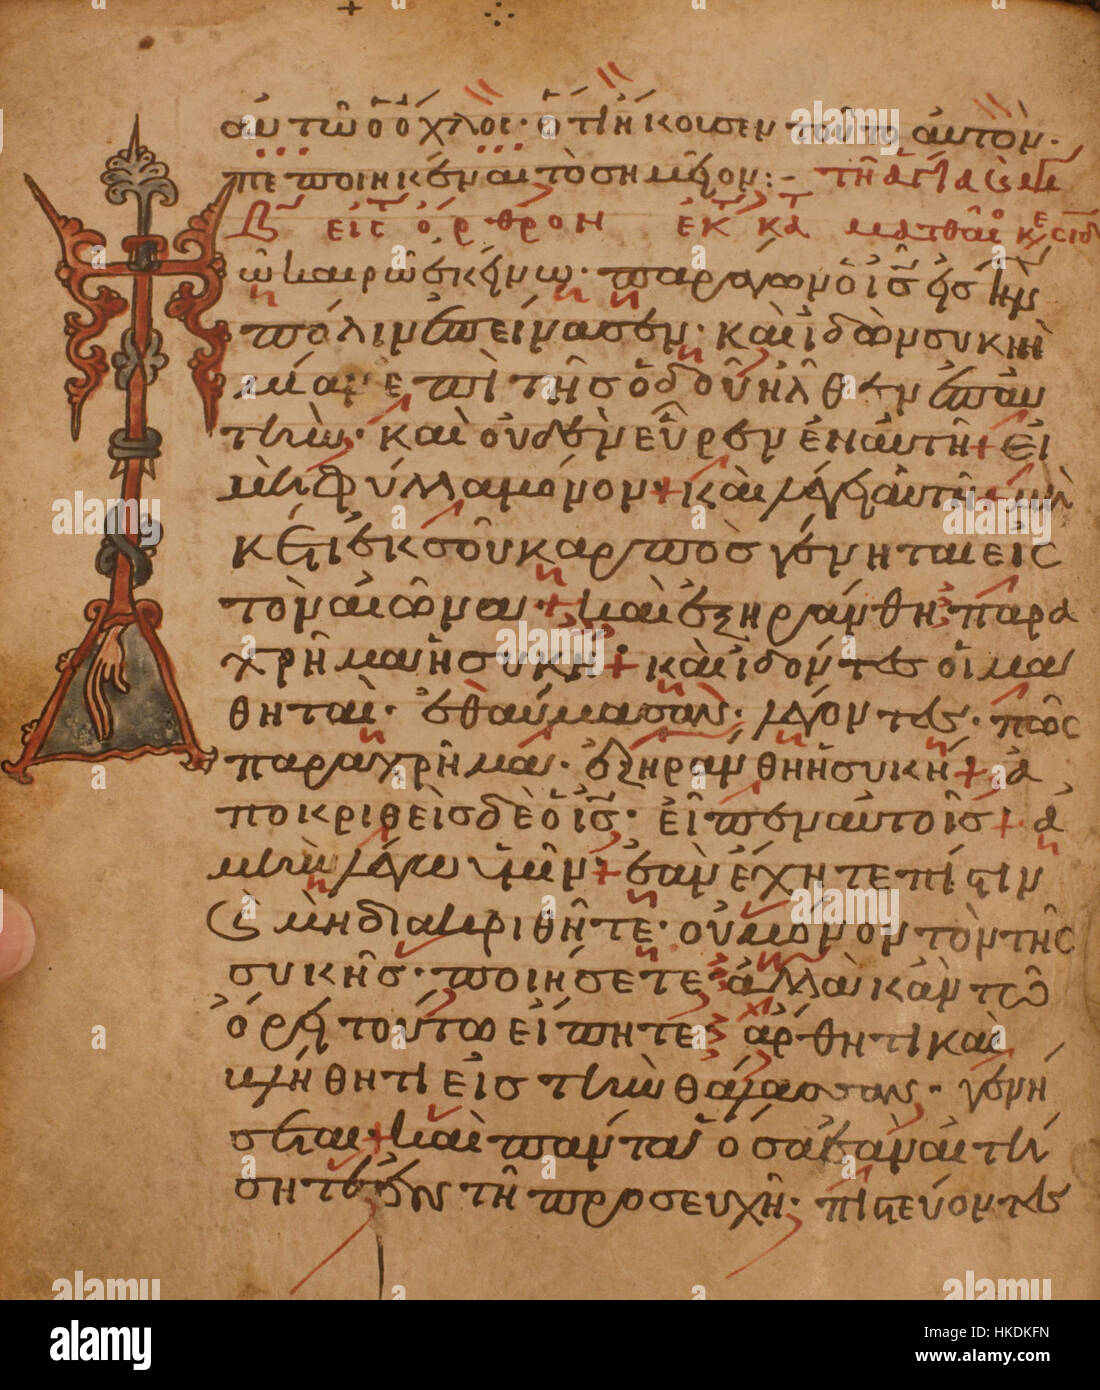 αὐτῶ ὁ ὄχλος· ὅτι ἤκουσεν τοῦτο αὐτὸν·
πεποιηκέναι τὸ σημεῖον:- τῆ ἁγία
εἰς ὄρθρον ἐκ κατὰ ματθαῖ κε
ῶ καιρῶ ἐκείνω· παράγων ὁ ἰς εἰς τὴν
πόλιν ἐπείνασεν· καὶ ἰδὼν συκῆν
μίαν ἐπὶ τῆς ὁδοῦ ἦλθεν ἐπ αυ
τὴν· καὶ οὐδὲν εὗρεν ἐν αυτῆ + εἰ
μὴ φύλλα μόνον + καὶ λέγει αὐτῆ + μη
κέτι ἐκ σοῦ καρπὸς γένηται εἰς
τὸν αἰῶνα + καὶ ἐξηράνθη παρα
χρῆμα ἡ συκῆ + καὶ ἰδόντες οἱ μα
θηταὶ· ἐθαύμασαν· λέγοντες· πῶς
παραχρῆμα· ἐξηράνθη ἡ συκῆ + ἀ
ποκριθεὶς δὲ ὁ ἰς· εἶπεν αὐτοῖς + ἀ
μὴν λέγω ὑμῖν + ἐὰν ἔχητε πίστιν
ϗ μὴ διακριθῆτε· οὐ μόνον τὸ τῆς
συκῆς· ποιήσετε ἀλλὰ κἂν τῶ
ὄρει τούτω εἴπητε ἄρθητι καὶ
βλήθητι εἰς τὴν θάλασσαν· γενή
σεται + καὶ πάντα ὅσα ἐὰν αἰτή
σητε ἐν τῆ προσευχῆ· πιστεύοντες
alamy
alamy
Image ID: HKDKFN
www.alamy.com